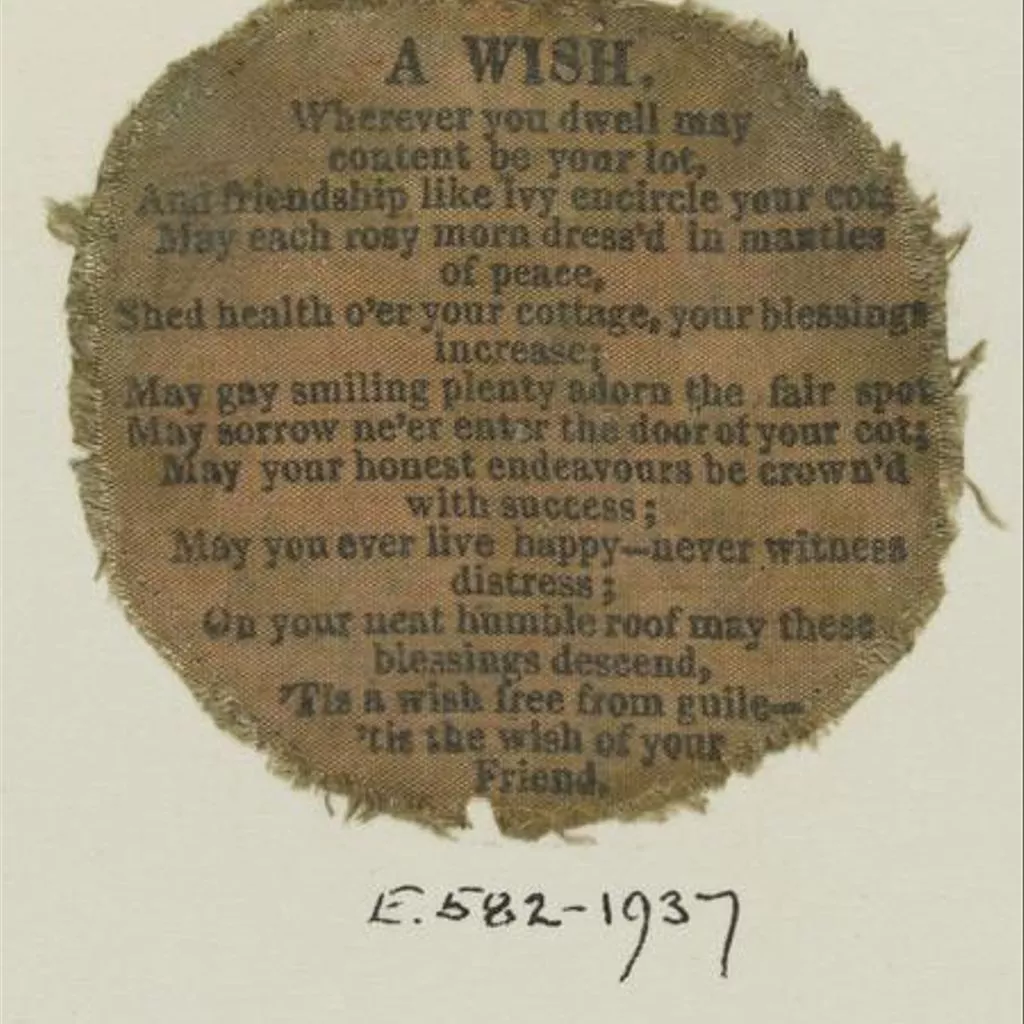 A WISH.
Wherever you dwell may
content be your lot,
And friendship like ivy encircle your cot;
May each rosy morn dress'd in mantles
of peace,
Shed health o'er your cottage, your blessings
increase;
May gay smiling plenty adorn the fair spot
May sorrow ne'er enter the door of your cot;
May your honest endeavours be crown'd
with success;
May you ever live happy—never witness
distress;
On your neat humble roof may these
blessings descend,
'Tis a wish free from guile—
'tis the wish of your
Friend.
E.582-1937